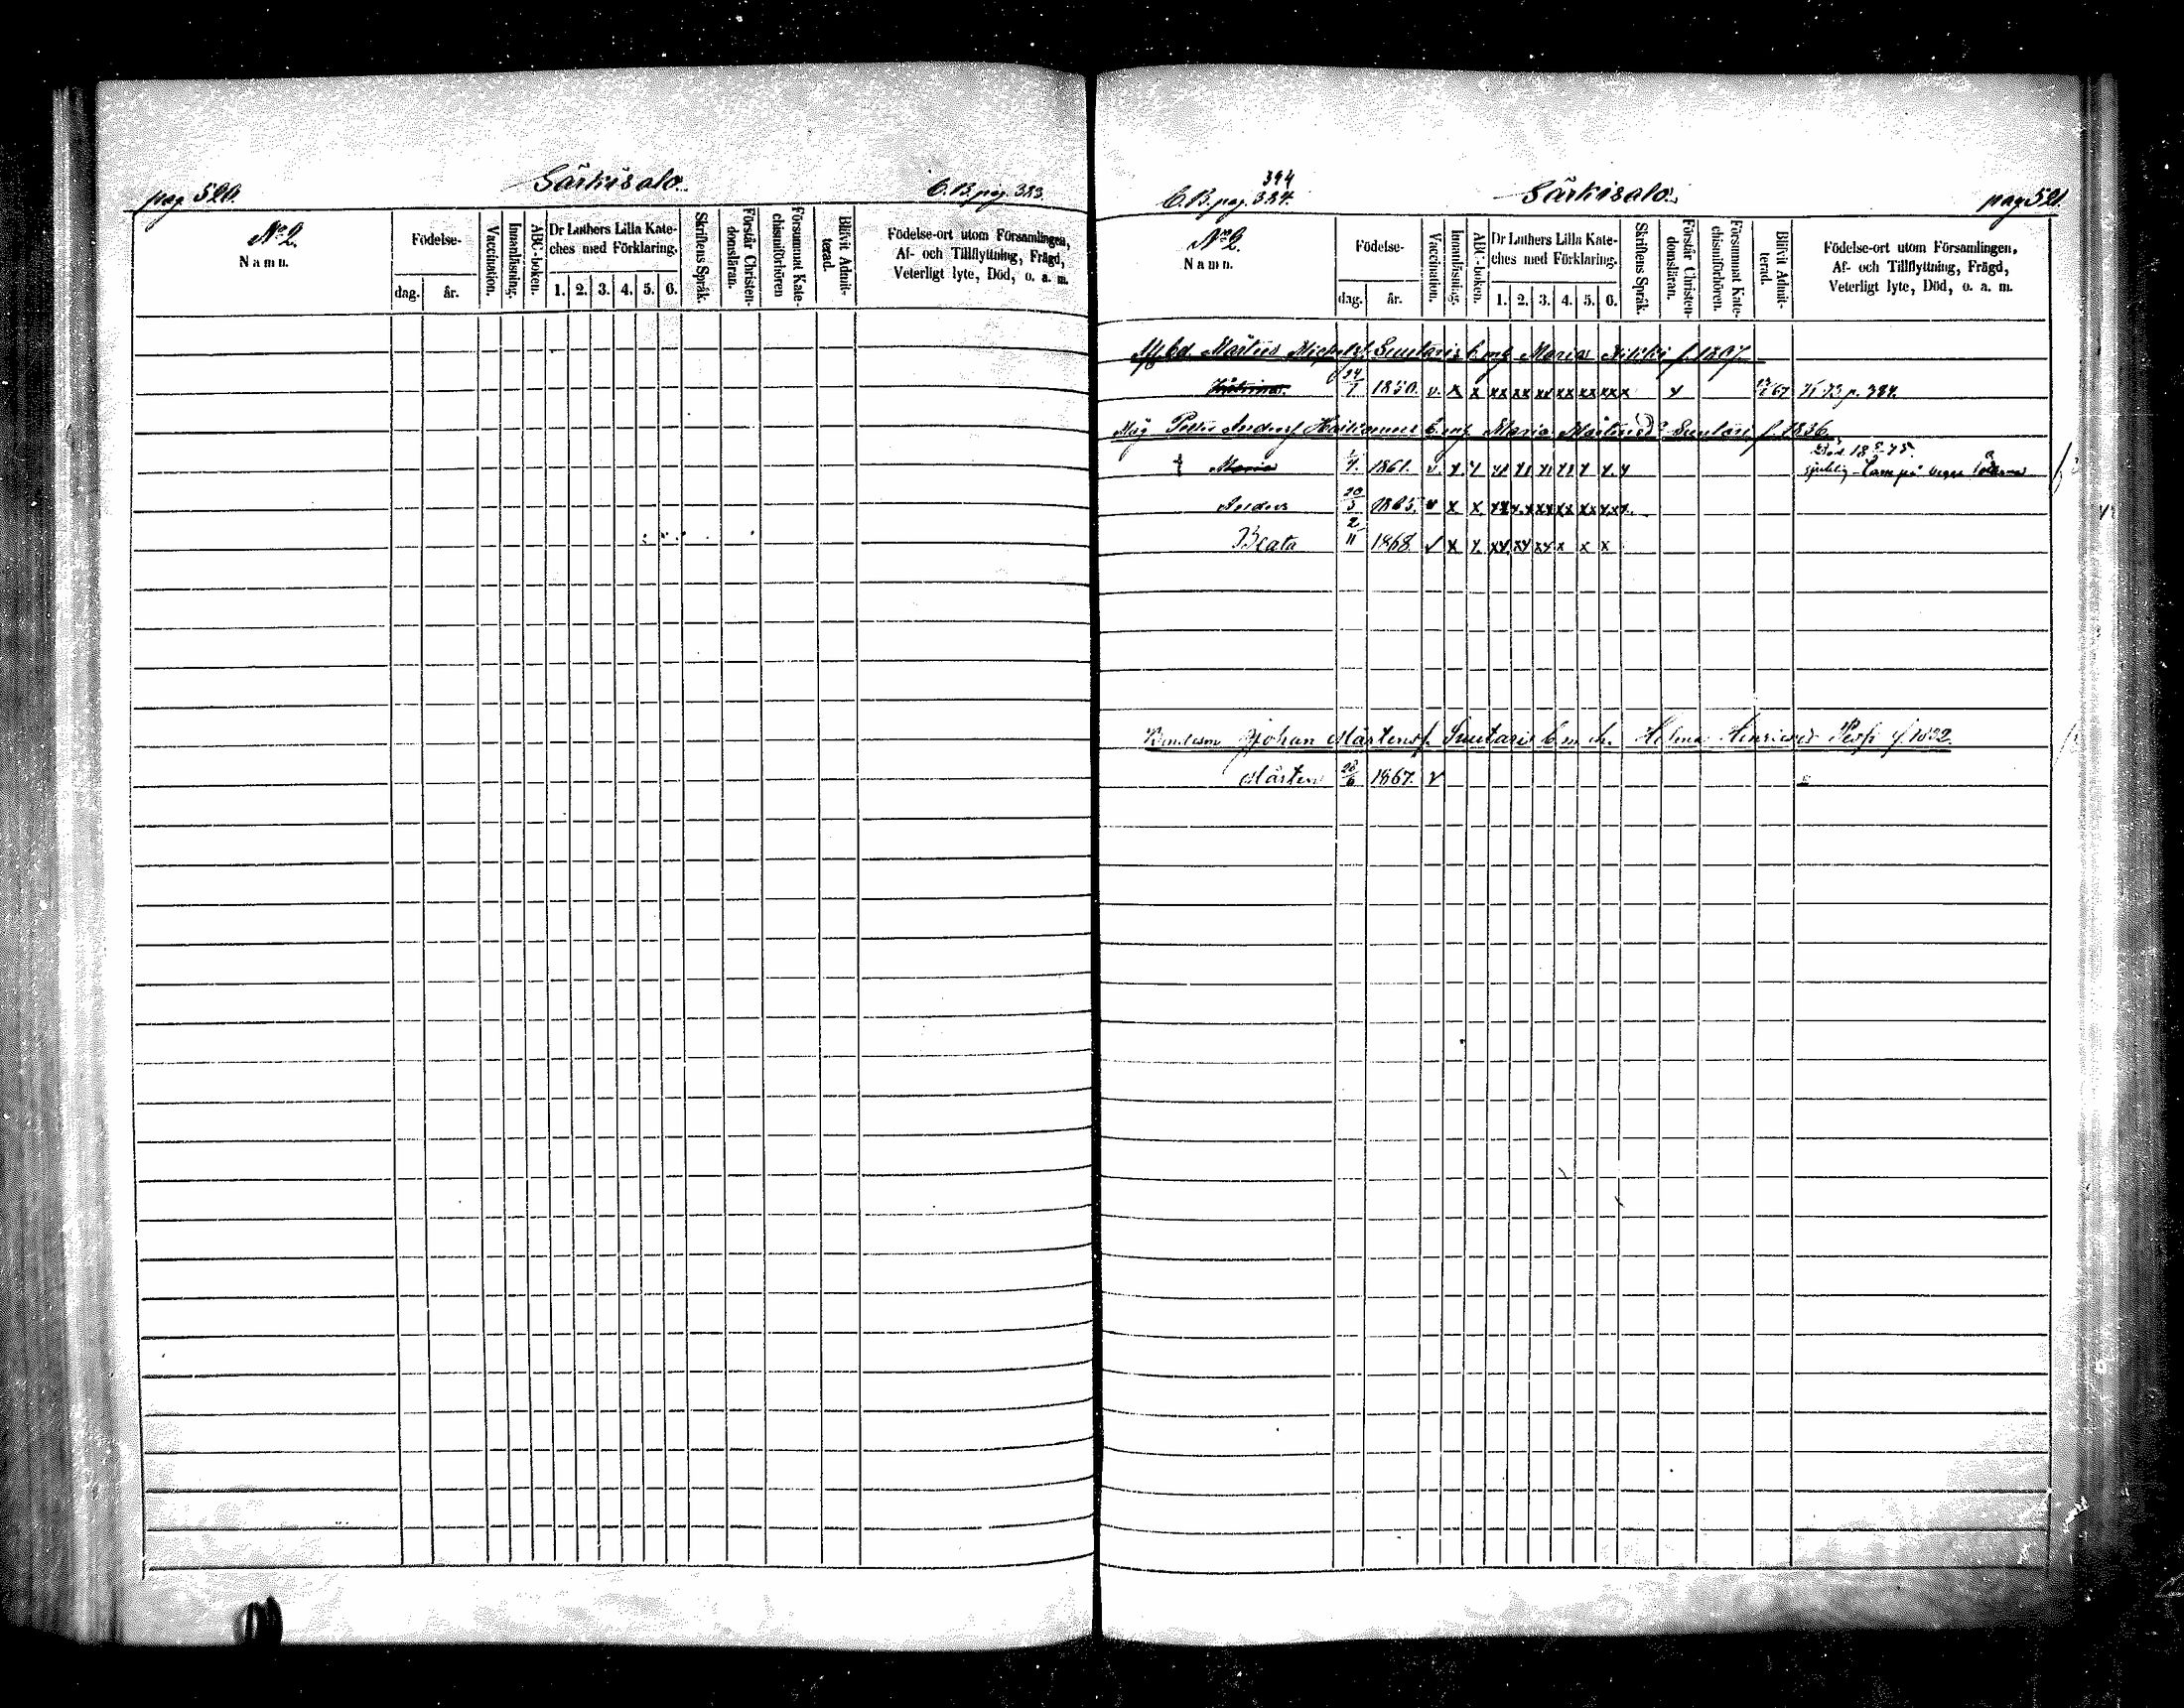 pag 520.
Särkisalo.
C. B. pag. 383.
No 2.
Namn.
Födelse-
dag.
år.
Vaccination.
Innanläsning.
ABC-boken.
Dr Luthers Lilla Kate-
ches med Förklaring.
1. 2. 3. 4. 5. 6.
Skriftens Språk.
Förstår Christen-
domsläran.
Försummat Kate-
chismiförhören
Blifvit Admit-
terad.
Födelse-ort utom Församlingen,
Af- och Tillflyttning, Frägd,
Veterligt lyte, Död, o. a. m.
394
C. B. pag. 384.
Särkisalo.
pag 521.
No 2.
Namn.
Födelse-
dag.
år.
Vaccination.
Innanläsning.
ABC-boken.
Dr Luthers Lilla Kate-
ches med Förklaring.
1. 2. 3. 4. 5. 6.
Skriftens Språk.
Förstår Christen-
domsläran.
Försummat Kate-
chismiförhören.
Blifvit Admit-
terad.
Födelse-ort utom Församlingen,
Af- och Tillflyttning, Frägd,
Veterligt lyte, Död, o. a. m.
Mårten Michelsf. Suutaris Maria f. 1807
24/7 1850. v. x x xx xx xx xx xx xxx 67 p. 384.
Måg Petter Andersf. Maria Mårtensd. Suutari f. 1836
Död 75.
Maria 1861. v.
Anders 20/3 1865. v x x
Beata 2/11 1868 v x x xx xx xx x x x
Johan Mårtensf. Suutaris Helena Henricsd. f. 1832.
Mårten 28/6 1867. v